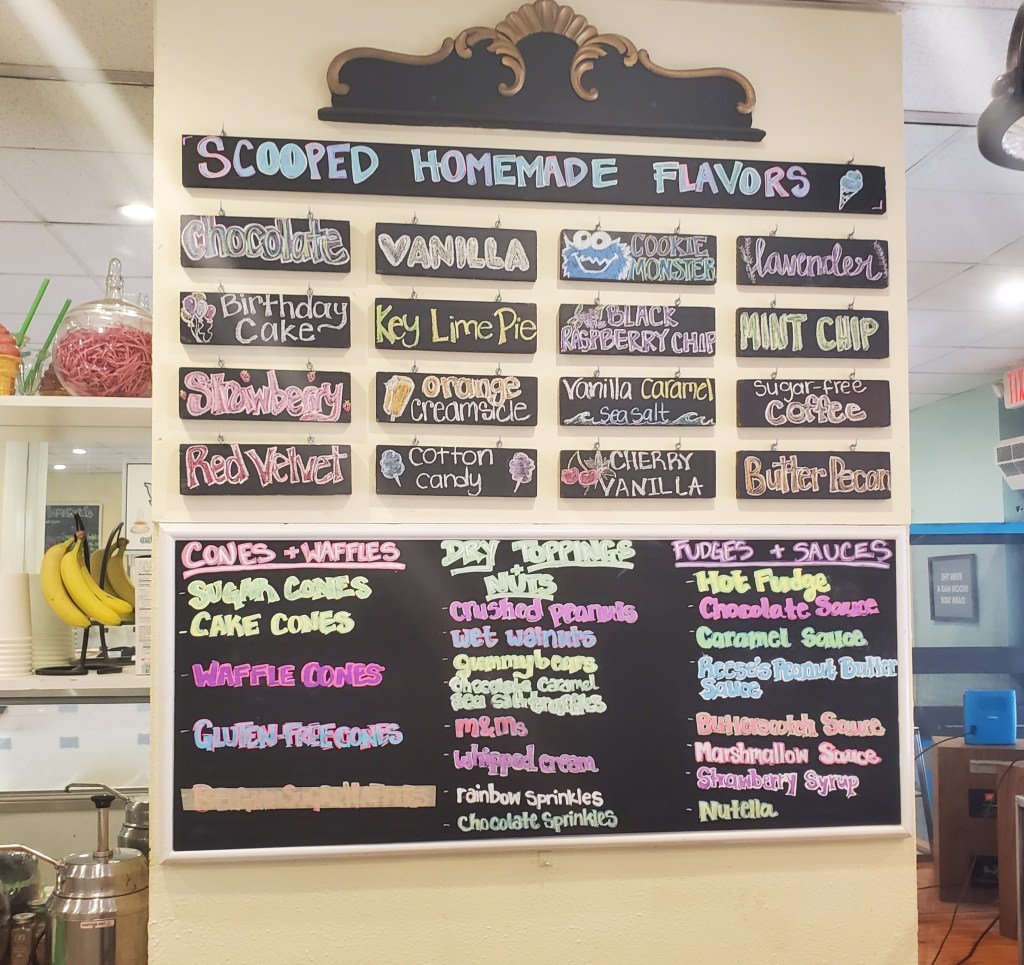 SCOOPED HOMEMADE FLAVORS
Chocolate
VANILLA
COOKIE
MONSTER
lavender
Birthday
Cake
Key Lime Pie
BLACK
RASPBERRY CHIP
MINT CHIP
Strawberry
orange
creamsicle
Vanilla Caramel
Sea Salt
Sugar-free
Coffee
Red Velvet
Cotton
Candy
CHERRY
VANILLA
Butter Pecan
CONES + WAFFLES
SUGAR CONES
- CAKE CONES
- WAFFLE CONES
- GLUTEN-FREE CONES
DRY TOPPINGS
+
NUTS
- Crushed Peanuts
- wet walnuts
- gummybears
- Chocolate Caramel
Sea Salt truffles
- M&Ms
- Whipped cream
- rainbow sprinkles
- Chocolate Sprinkles
FUDGES + SAUCES
- Hot Fudge
- Chocolate Sauce
- Caramel Sauce
- Reese's Peanut Butter
Sauce
- Butterscotch Sauce
- Marshmallow Sauce
- Strawberry Syrup
- Nutella